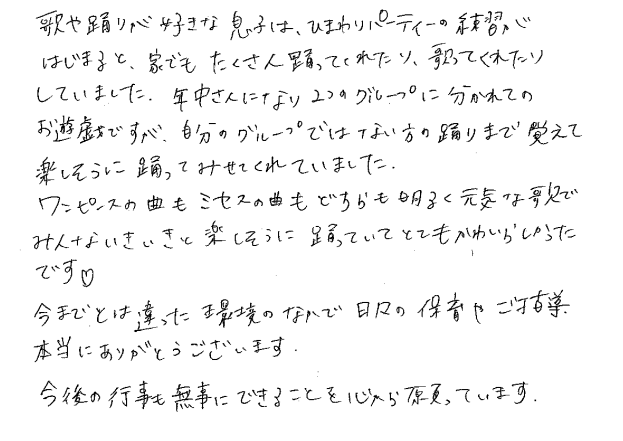 歌や踊りが好きな息子は、ひまわりパーティーの練習が
はじまると、家でもたくさん踊ってくれたり、歌ってくれたり
していました。年中さんになり2つのグループに分かれての
お遊戯ですが、自分のグループではない方の踊りまで覚えて
楽しそうに踊ってみせてくれていました。
ワンピースの曲もミセスの曲もどちらも明るく元気な歌で
みんないきいきと楽しそうに踊っていてとてもかわいらしかった
です♡
今までとは違った環境のなかで日々の保育やご指導
本当にありがとうございます。
今後の行事も無事にできることを心から願っています。